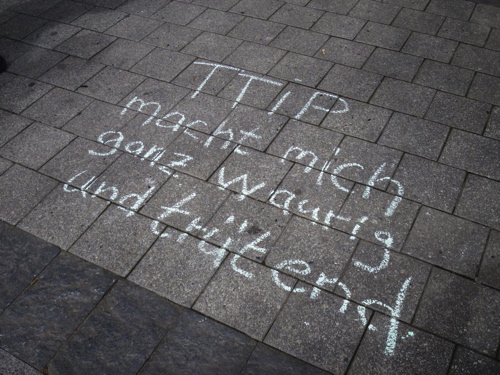 TTIP
macht mich
ganz Waurig
und trütend